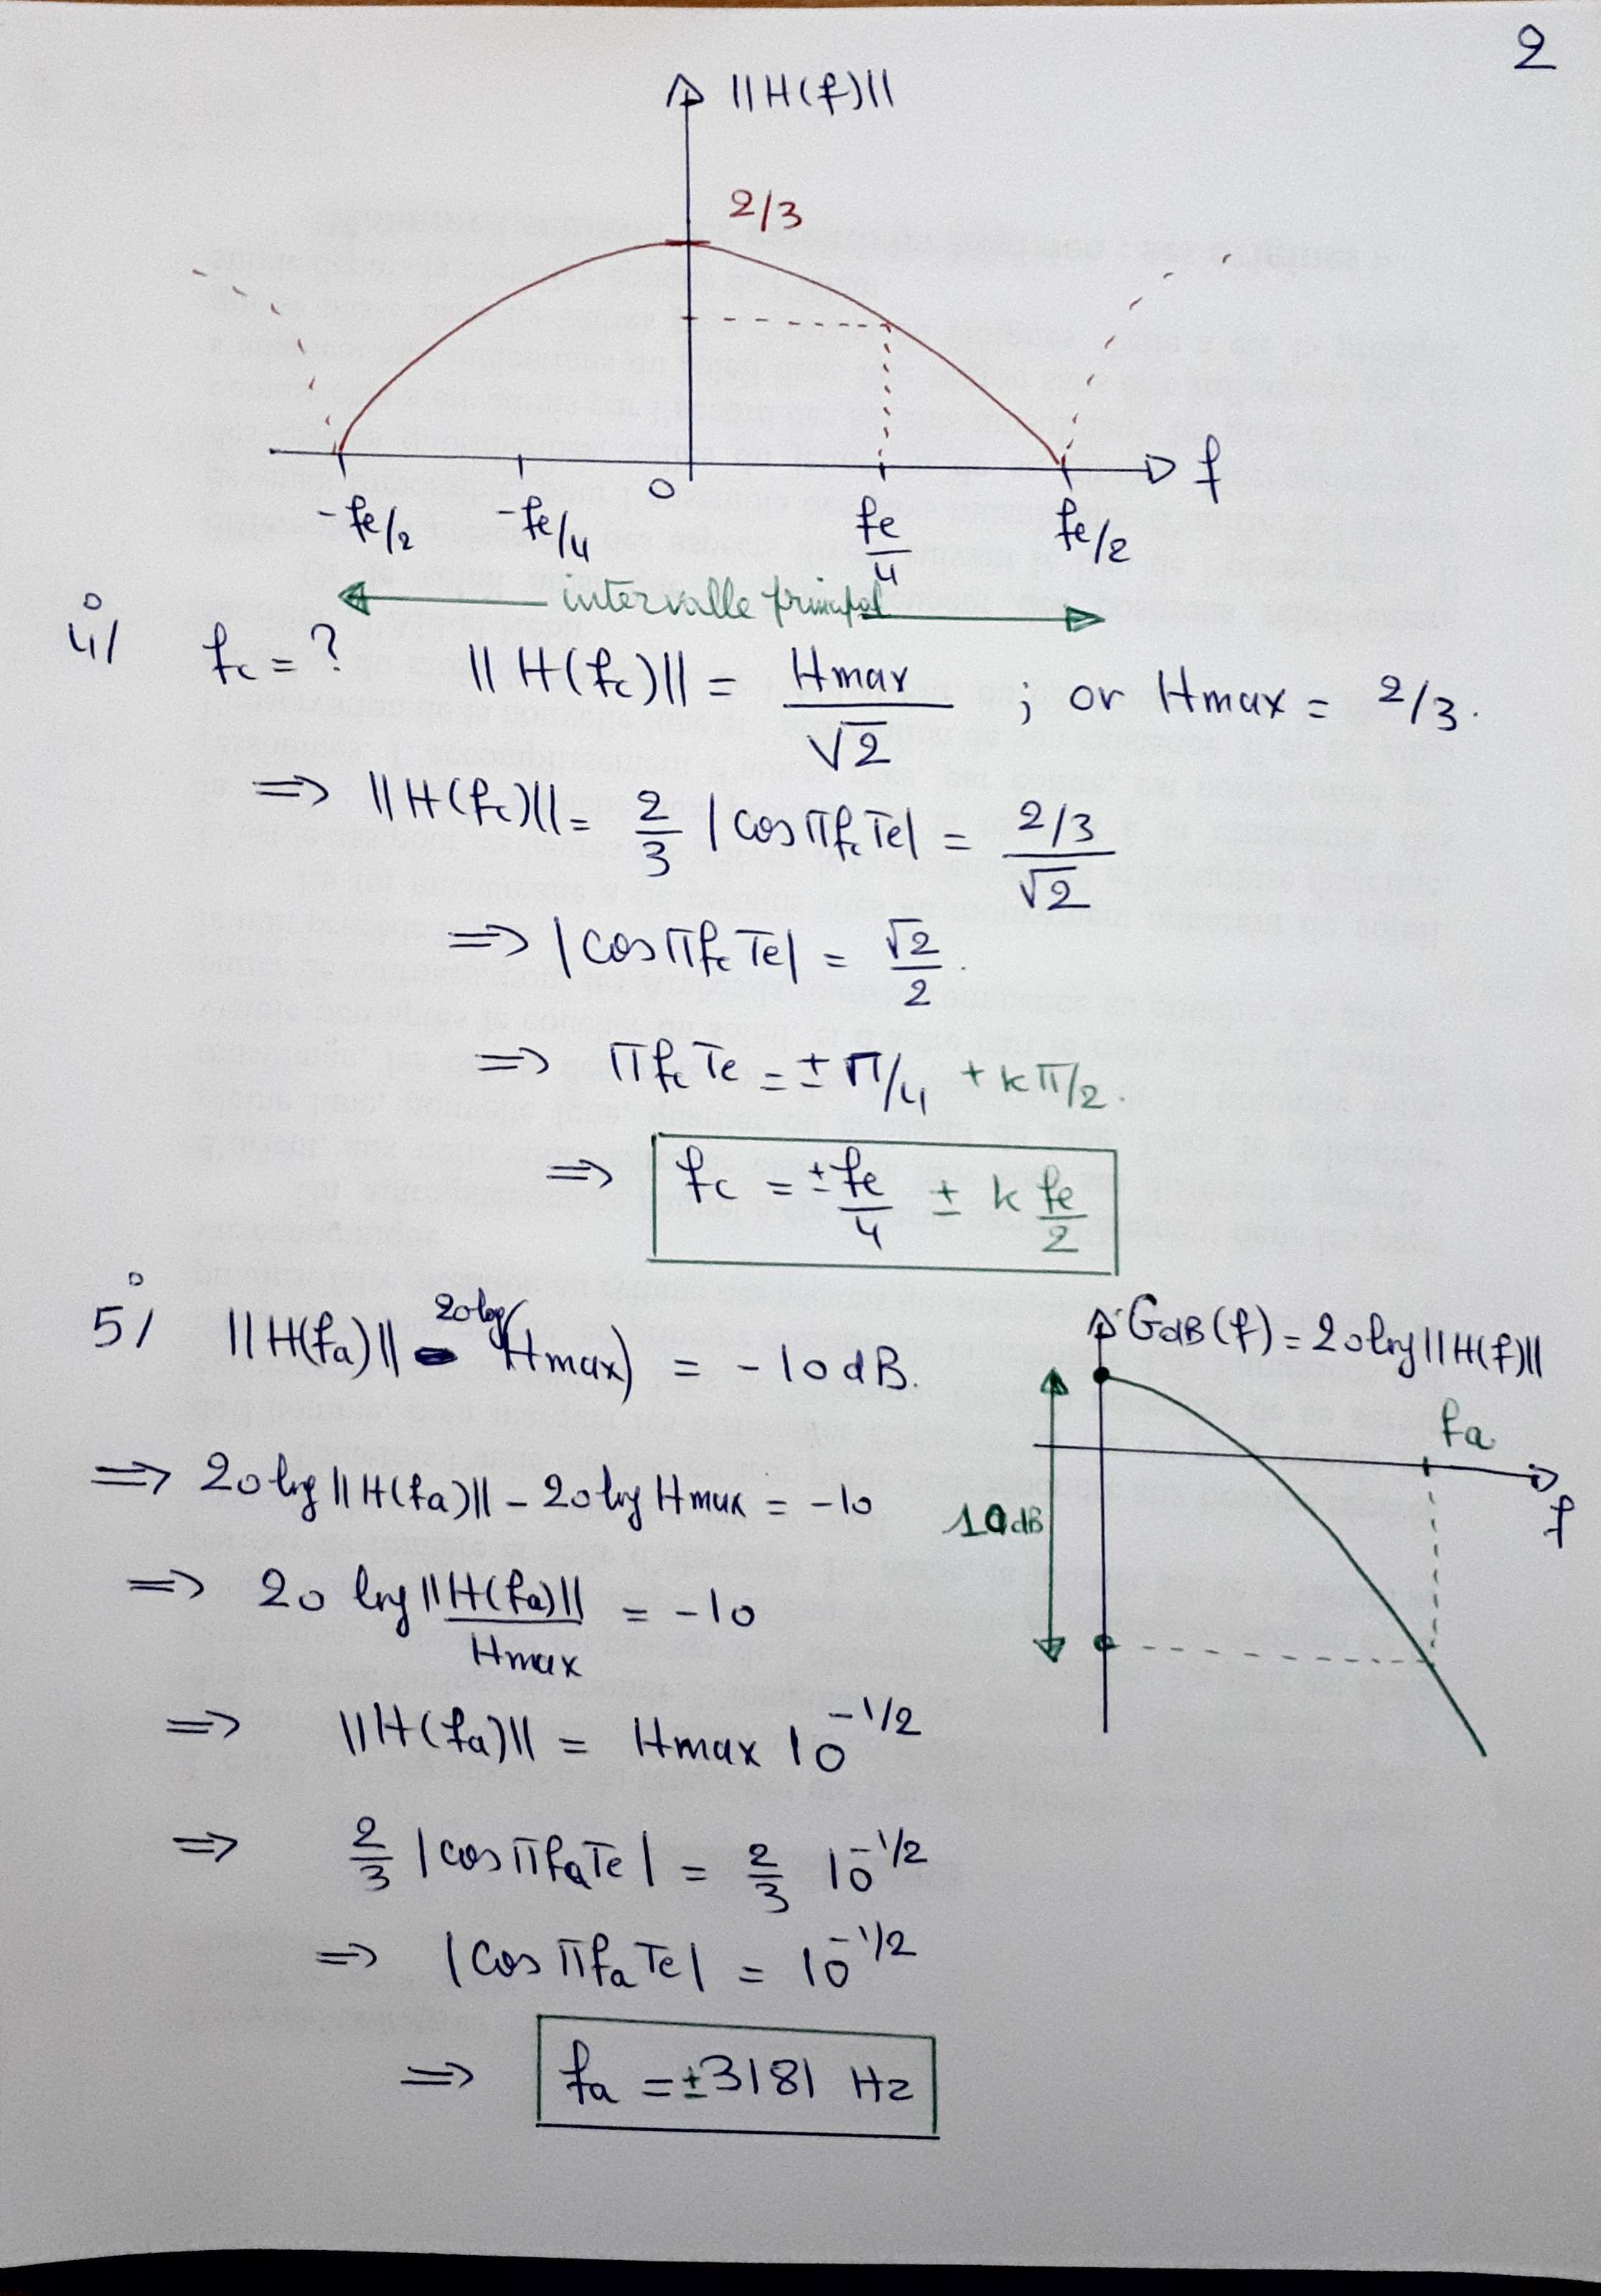 2
||H(f)||
2/3
0
f
-fe/2 -fe/4 fe/4 fe/2
intervalle principal
4°/ fc = ? ||H(fc)|| = Hmax/√2 ; or Hmax = 2/3.
=> ||H(fc)|| = 2/3 |cos πfc Te| = (2/3)/√2
=> |cos πfc Te| = √2/2.
=> πfc Te = ± π/4 + kπ/2.
=> fc = ± fe/4 ± k fe/2
5°/ ||H(fa)|| - 20log(Hmax) = -10dB.
GdB(f) = 20log||H(f)||
fa
f
10dB
=> 20log||H(fa)|| - 20log Hmax = -10
=> 20 log ||H(fa)||/Hmax = -10
=> ||H(fa)|| = Hmax 10^-1/2
=> 2/3 |cos πfaTe| = 2/3 10^-1/2
=> |cos πfa Te| = 10^-1/2
=> fa = ±3181 Hz